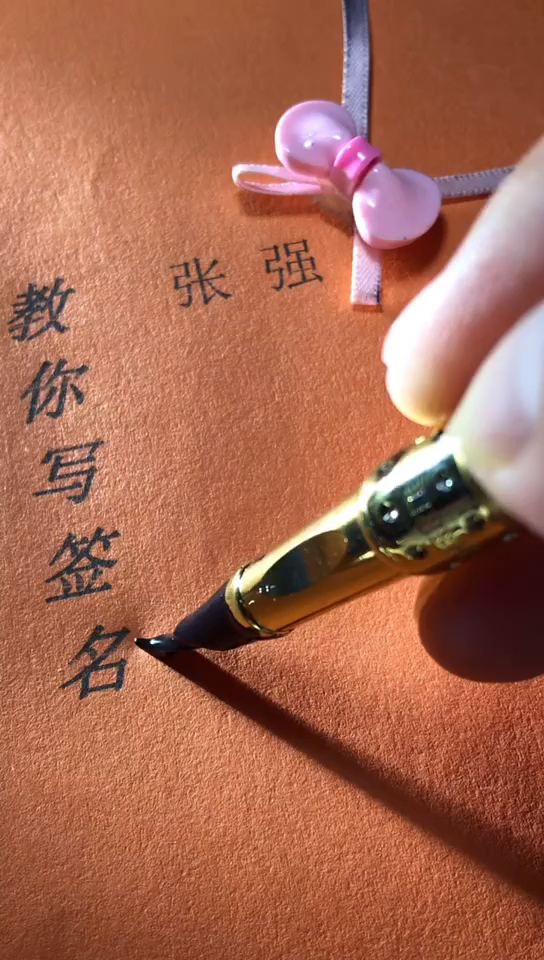 张强
教你写签名